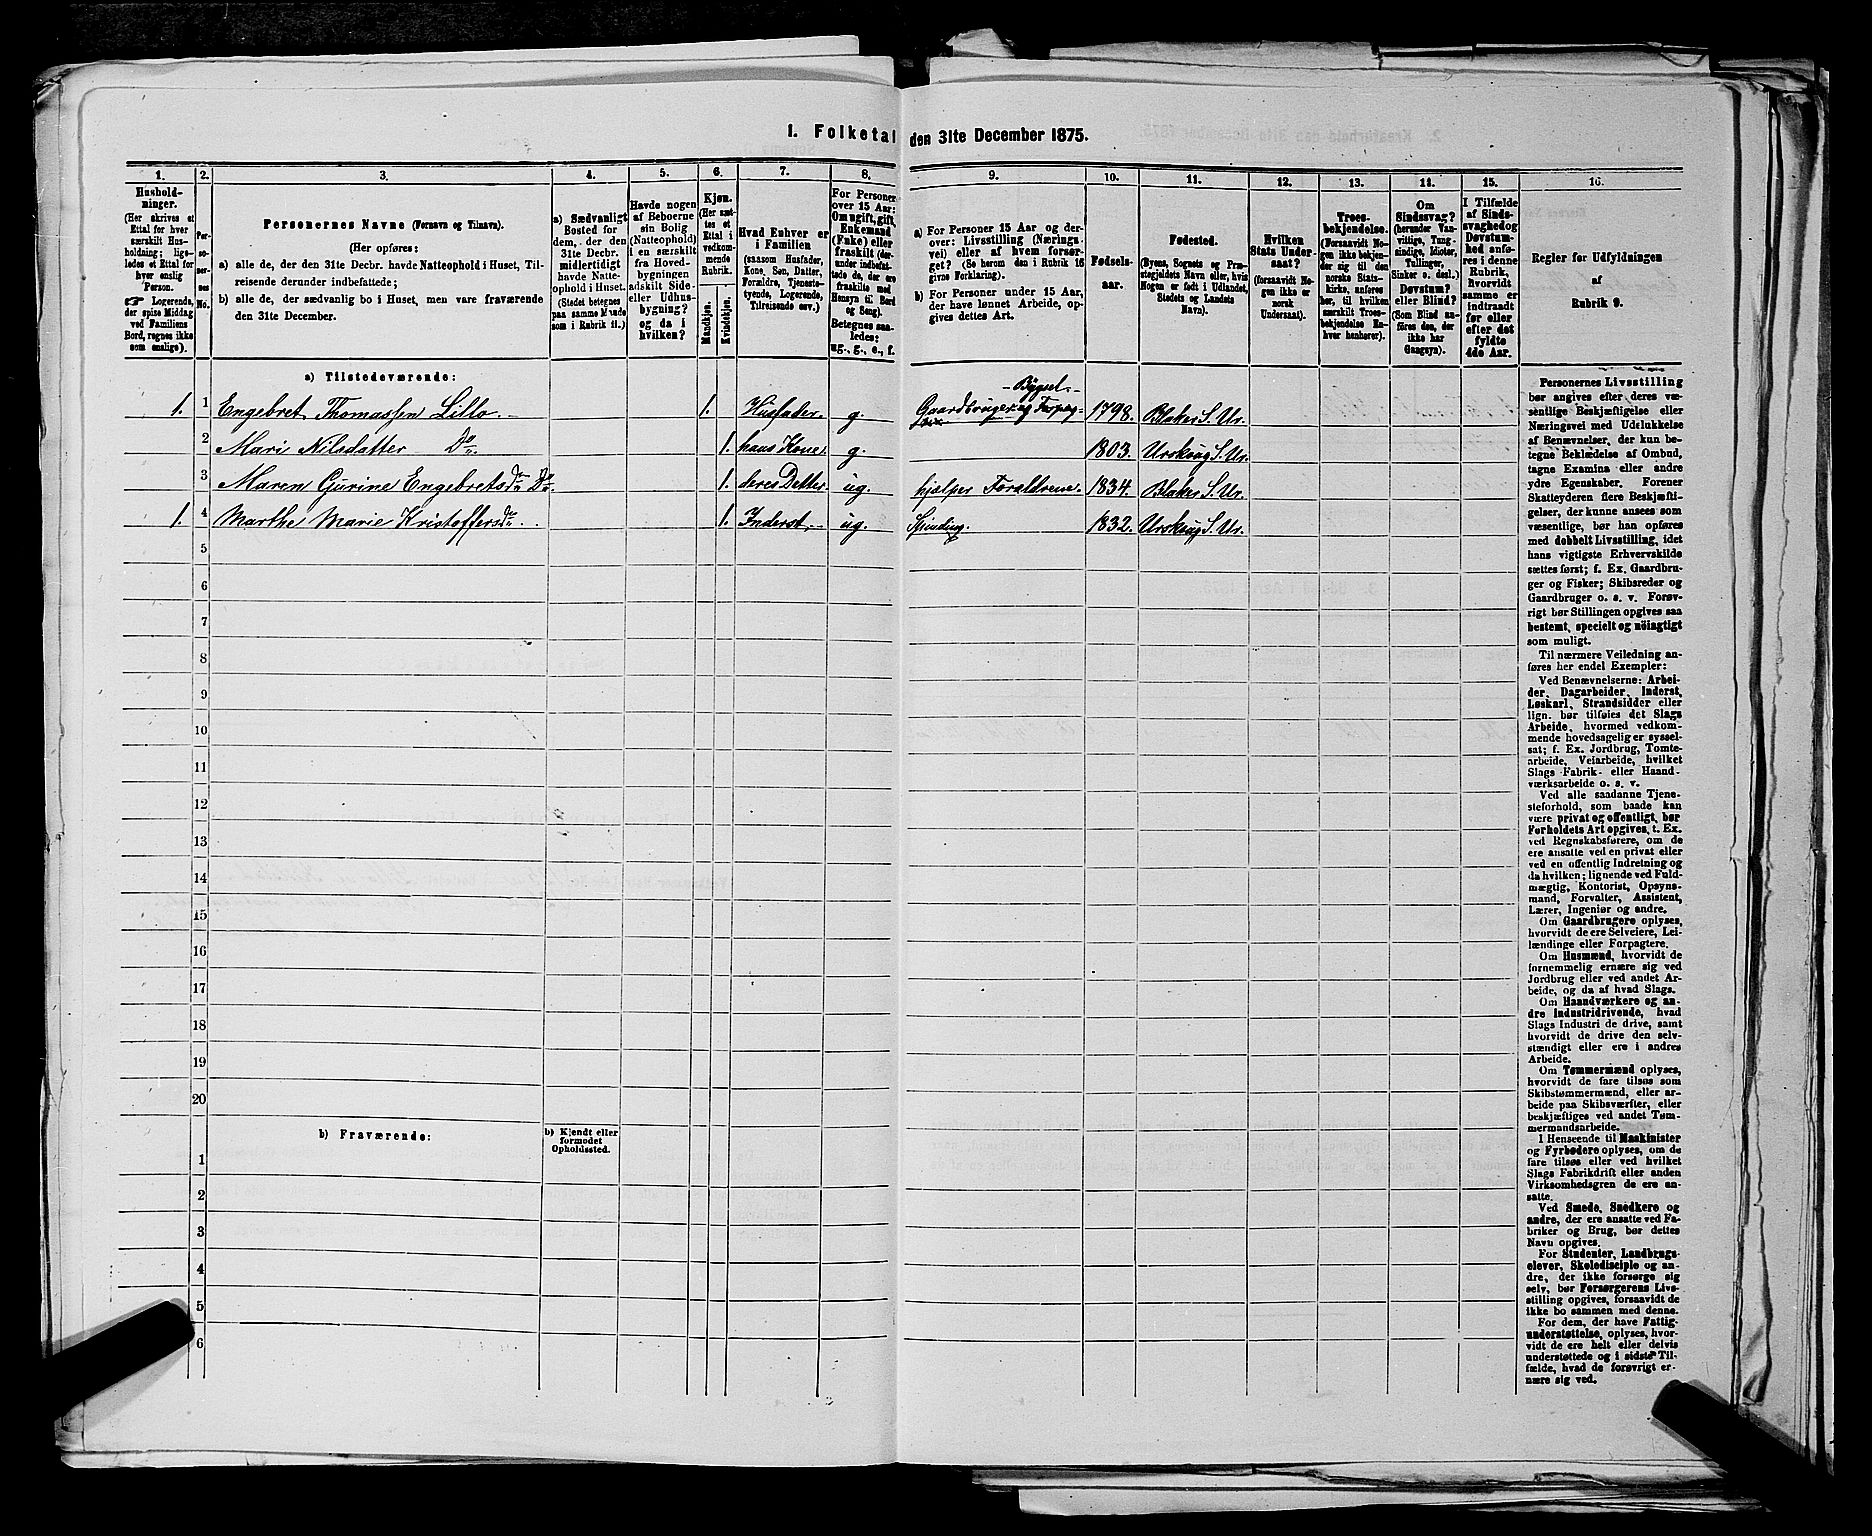 1. Folketal den 31te December 1875.
1.
2.
3.
4.
5.
6.
7.
8.
9.
10.
11.
12.
13.
14.
15.
16.
Hushold-
ninger.
(Her skrives et
Ettal for hver
særskilt Hus-
holdning; lige-
ledes et Ettal for
hver enslig
Person.
☞ Logerende,
der spise Middag
ved Familiens
Bord, regnes ikke
som enslige).
Per-
so-
ner-
nes
No.
Personernes Navne (Fornavn og Tilnavn).
(Her opføres:
a) alle de, der den 31te Decbr. havde Natteophold i Huset, Til-
reisende derunder indbefattede;
b) alle de, der sædvanlig bo i Huset, men vare fraværende
den 31te December.
a) Sædvanligt
Bosted for
dem, der den
31te Decbr.
midlertidigt
havde Natte-
ophold i Huset.
(Stedet betegnes
paa samme Maade
som i Rubrik 11.)
Havde nogen
af Beboerne
sin Bolig
(Natteophold)
i en særskilt
fra Hoved-
bygningen
adskilt Side-
eller Udhus-
bygning?
og da i
hvilken?
Kjøn.
(Her sæt-
tes et
Ettal i
vedkom-
mende
Rubrik.
Mandkjøn.
Kvindekjøn.
Hvad Enhver er
i Familien
(saasom Husfader,
Kone, Søn, Datter,
Forældre, Tjeneste-
tyende, Logerende,
Tilreisende osv.)
For Personer
over 15 Aar:
Om ugift, gift,
Enkemand
(Enke) eller
fraskilt (der-
under indbefat-
tede de, der ere
fraskilte med
Hensyn til Bord
og Seng).
Betegnes saa-
ledes:
ug., g., e., f.
a) For Personer 15 Aar og der-
over: Livsstilling (Nærings-
vei) eller af hvem forsør-
get? (Se herom den i Rubrik 16
givne Forklaring).
b) For Personer under 15 Aar,
der have lønnet Arbeide, op-
gives dettes Art.
Fødsels-
aar.
Fødested.
(Byens, Sognets og Præ-
stegjeldets Navn eller, hvis
Nogen er født i Udlandet,
Stedets og Landets
Navn).
Hvilken
Stats Under-
saat?
(forsaavidt No-
gen ikke er
norsk
Undersaat).
Troes-
bekjendelse.
(Forsaavidt No-
gen ikke bekjen-
der sig til den
norske Stats-
kirke, anføres
her, til hvilken
særskilt Troes-
bekjendelse En-
hver henhører).
Om
Sindssvag?
(herunder Van-
vittige, Tung-
sindige, Idioter,
Tullinger,
Sinker o. desl.)
Døvstum?
eller Blind?
(Som Blind an-
føres den, der
ikke har
Gangsyn).
I Tilfælde
af Sinds-
svaghed og
Døvstum-
hed anfø-
res i denne
Rubrik,
hvorvidt
samme er
indtraadt
før eller
efter det
fyldte
4de Aar.
Regler for Udfyldningen
af
Rubrik 9.
a) Tilstedeværende:
1. 1 Engebret Thomassen Lillo. 1. Husfader. g. Gaardbruger og Forpag- Bygsel. 1798. Blaker S. Ur.
2 Mari Nilsdatter Do 1. hans Kone. g. 1803. Urskoug S. Ur.
3 Maren Gurine Engebretsdr Do. 1. deres Datter. ug. hjælper Foraldrene. 1834. Blaker S. Ur.
1. 4 Marthe Marie Kristoffersdr. 1. Inderst. ug. Spinding. 1832. Urskoug S. Ur.
5
6
7
8
9
10
11
12
13
14
15
16
17
18
19
20
b) Fraværende:
b) Kjendt eller
formodet
Opholdssted.
1
2
3
4
5
6
Personernes Livsstilling
bør angives efter deres væ-
sentlige Beskjæftigelse eller
Næringsvei med Udelukkelse
af Benævnelser, der kun be-
tegne Beklædelse af Ombud,
tagne Examina eller andre
ydre Egenskaber. Forener
Skatteyderen flere Beskjæfti-
gelser, der kunne ansees som
væsentlige, bør han opføres
med dobbelt Livsstilling, idet
hans vigtigste Erhvervskilde
sættes først; f. Ex. Gaardbru-
ger og Fisker; Skibsreder og
Gaardbruger o. s. v. Forøv-
rigt bør Stillingen opgives saa
bestemt, specielt og nöiagtigt
som muligt.
Til nærmere Veiledning an-
føres her endel Exempler:
Ved Benævnelserne: Arbei-
der, Dagarbeider, Inderst,
Løskarl, Strandsidder eller
lign. bør tilføies det Slags
Arbeide, hvormed vedkom-
mende hovedsagelig er syssel-
sat; f. Ex. Jordbrug, Tomte-
arbeide, Veiarbeide, hvilket
Slags Fabrik- eller Haand-
værksarbeide o. s. v.
Ved alle saadanne Tjene-
steforhold, som baade kan
være privat og offentligt, bør
Forholdets Art opgives, t. Ex.
ved Regnskabsførere, om de
ere ansatte ved en privat eller
ved en offentlig Indretning og
da hvilken; lignende ved Fuld-
mægtig, Kontorist, Opsyns-
mand, Forvalter, Assistent,
Lærer, Ingeniør og andre.
Om Gaardbrugere oplyses,
hvorvidt de ere Selveiere, Lei-
lændinge eller Forpagtere.
Om Husmænd, hvorvidt de
fornemmelig ernære sig ved
Jordbrug eller ved andet Ar-
beide, og da af hvad Slags.
Om Haandværkere og an-
dre Industridrivende, hvad
Slags Industri de drive, samt
hvorvidt de drive den selv-
stændigt eller ere i andres
Arbeide.
Om Tømmermænd oplyses,
hvorvidt de fare tilsøs som
Skibstømmermænd, eller ar-
beide paa Skibsværfter, eller
beskjæftiges ved andet Tøm-
mermandsarbeide.
I Henseende til Maskinister
og Fyrbødere oplyses, om de
fare tilsøs eller ved hvilket
Slags Fabrikdrift eller anden
Virksomhedsgren de ere an-
satte.
Ved Smede, Snedkere og
andre, der ere ansatte ved Fa-
briker og Brug, bør dettes
Navn opgives.
For Studenter, Landbrugs-
elever, Skoledisciple og an-
dre, der ikke forsørge sig
selv, bør Forsørgerens Livs-
stilling opgives, forsaavidt de
ikke bo sammen med denne.
For dem, der have Fattig-
understøttelse, oplyses, hvor-
vidt de ere helt eller delvis
understøttede og i sidste Til-
fælde, hvad de forøvrigt er-
nære sig ved.